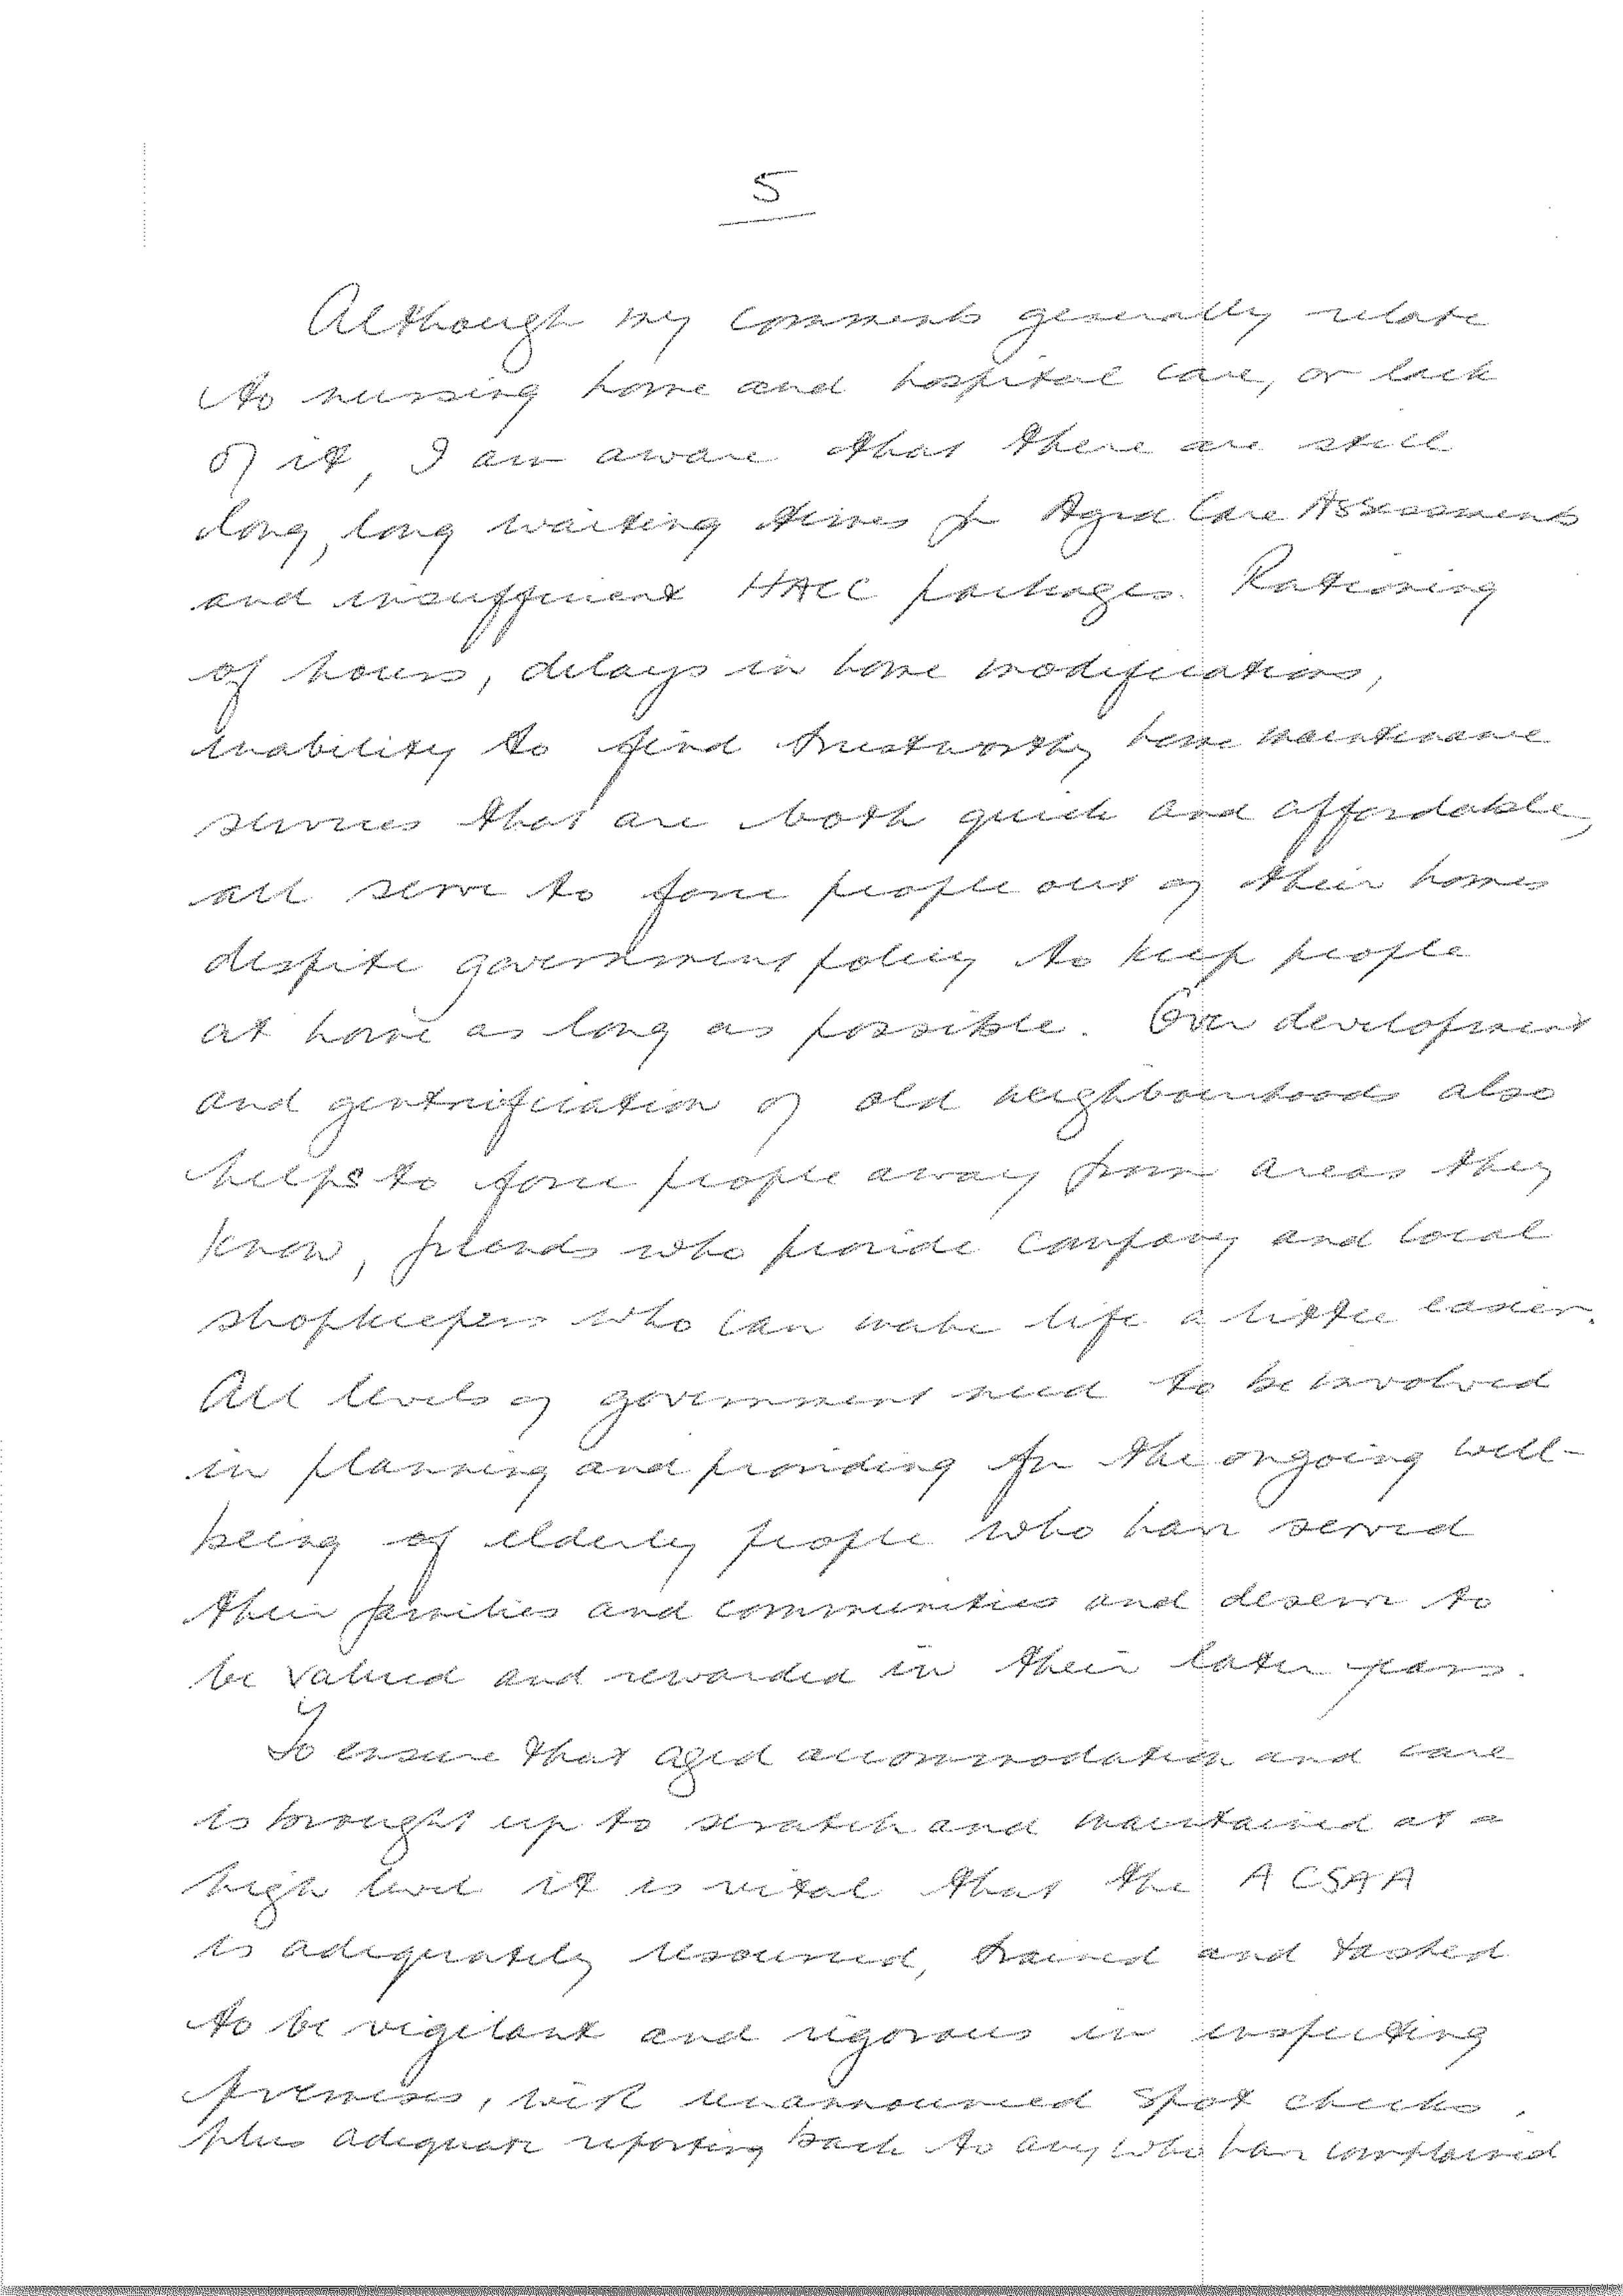 5
Although my comments generally relate
to nursing home and hospital care, or lack
of it, I am aware that there are still
long, long waiting times for Aged Care Assessments
and insufficient HACC packages. Rationing
of hours, delays in home modifications,
inability to find trustworthy home maintenance
services that are both quick and affordable,
all serve to force people out of their homes
despite government policy to keep people
at home as long as possible. Over development
and gentrification of old neighbourhoods also
helps to force people away from areas they
know, friends who provide company and local
shopkeepers who can make life a little easier.
All levels of government need to be involved
in planning and providing for the ongoing well-
being of elderly people who have served
their families and communities and deserve to
be valued and rewarded in their later years.
To ensure that aged accommodation and care
is brought up to scratch and maintained at a
high level it is vital that the ACSAA
is adequately resourced, trained and tasked
to be vigilant and rigorous in inspecting
premises, with unannounced spot checks,
plus adequate reporting back to any who have complained